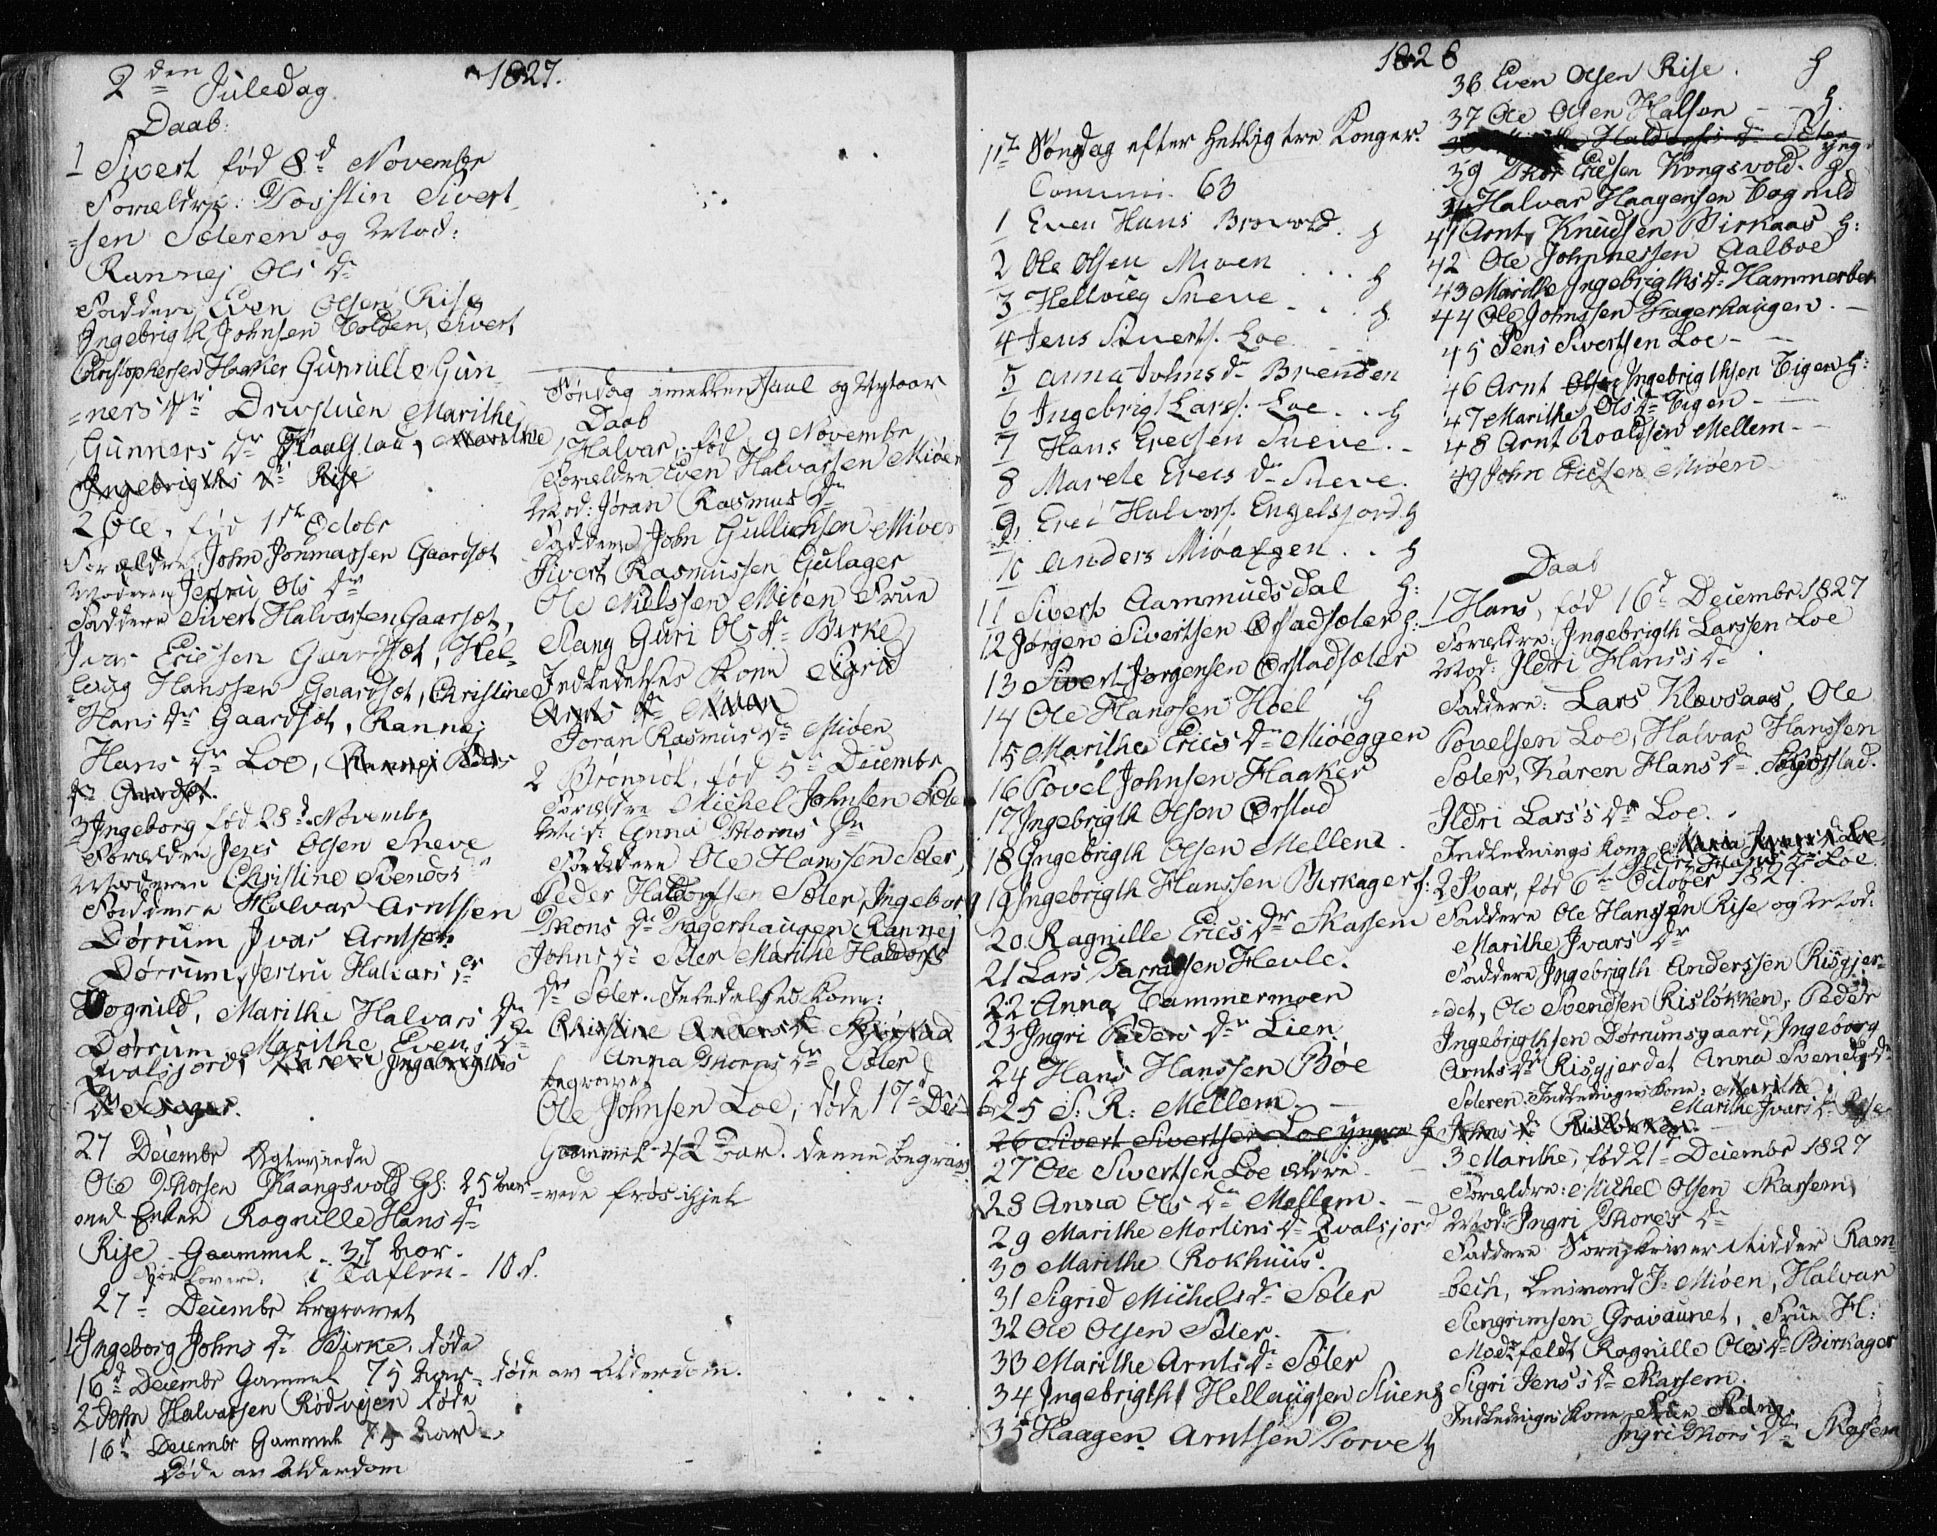 1827.
2den Juledag
Daab:
1 Sivert fød 8d November
Forældre: Torstin Sivert-
=sen Sæteren og Mod:
Rannej Ols dr
Faddere Even Olsen Rise
Ingebrigth Johnsen Volden, Sivert
Christophersen Haaker Gunnille Gun-
=ners dr Drivstuen Marithe
Gunners dr Kaalstad, Marithe
Ingebrigths dr Rise
2 Ole, fød 1ste October
Forældre John Jonnassen Gaardsøt
Moderen Jertru Ols dr
Faddere Sivert Halvorsen Gaarsøt,
Ivar Ericsen Gaardsøt, Hel-
levug Hanssen Gaardsøt, Christine
Hans dr Gaardsøt, Rannej
Hans dr Loe, Rannej Peders
dr Gaardsøt.
3 Ingeborg fød 28d November
Forældre Jens Olsen Sneve
Moderen Christine Svends dr
Faddere Halvar Arntsen
Dørrum Ivar Arntsen
Dørrum, Jertru Halvars dr
Vognild, Marithe Halvars dr
Dørrum, Marithe Evens dr
Qvalsjord, Karen Ingebrigths
dr
27 December Ægteviede
Ole Thorsen Kaangsvold Gl: 25 Aar
med Enken Ragnille Hans dr
Rise Gammel 37 Aar.
Forlovere. i Taflen. 10 s.
27d December begravet
1 Ingeborg Johns dr Birke, døde
16d December Gammel 75 Aar- døde av Alderdom.
2 John Halvarsen Rødvejen døde
16d December Gammel 75 Aar-
døde av Alderdom
Søndag imellem Juul og Nytaar
Daab
1 Halvar, fød 9 November
Forældre Even Halvarsen Miøen
Mod: Jøran Rasmus dr
Faddere John Gullichsen Miøen
Sivert Rasmussen Gulager
Ole Nielssen Miøen Frue
Stang Guri Ols dr Birke
Indledelses Kone Sigrid
Arnts dr Miøen
Jøran Rasmus dr Miøen
2 Brønnøl, fød 5d December
Forældre Michel Johnsen Sæter
Mod: Anna Thoms dr
Faddere Ole Hanssen Sæter,
Peder Haldorsen Sæter, Ingeborg
Thons dr Fagerhaugen Rannej
Johns dr Sæter Marithe Haldors
dr Sæter. Indledelses Kone:
Christine Anders dr
Anna Thoms dr Sæter
begravet
Ole Johnsen Loe, døde 17d Decbr
Gammel 42 Aar. denne begrav-
=vede frøs ihjel
1828
1ste Søndag efter Hellig tre Konger.
Communi. 63
1 Even Hans Brovold. h
2 Ole Olsen Miøen . . . h
3 Hellvieg Sneve - . . h
4 Jens Siverts. Loe
5 Anna Johns dr Brenden
6 Ingebrigt Lars. Loe . . h
7 Hans Ericsen Sneve . -
8 Marete Erics dr Sneve.
9 Eric Halvors. Engelsjord h
10 Anders Miøaegen . . h
11 Sivert Aammuds dal h:
12 Jørgen Sivertsen Ørstadsæter h:
13 Sivert Jørgensen Ørstadsæter
14 Ole Hanssen Hoel h
15 Marithe Erics dr Miøeggen
16 Povel Johnsen Haaker
17 Ingebrigth Olsen Ørstad
18 Ingebrigth Olsen Mellem.
19 Ingebrigth Hanssen Birkager h:
20 Ragnille Erics dr Skarsem
21 Lars Hevle.
22 Anna Tammermoen
23 Ingri Peders dr Lien
24 Hans Hanssen Bøe
25 S: R: Mellem. -
26 Sivert Sivertsen Loe yngre h
27 Ole Sivertsen Loe ældre
28 Anna Ols dr Mellem. -
29 Marithe Mortins dr Qvalsjord
30 Marithe Rokhuus.
31 Sigrid Michels dr Sæter
32 Ole Olsen Sæter. -
33 Marithe Arnts dr Sæter
34 Ingebrigth Hellevigsen Stuen h
35 Haagen Arntsen Torve h
36 Even Olsen Rise . h
37 Ole Olsen Halsen - - h.
38 Haldorsis dr Sæter
39 Thor Ericsen Kongsvold. yng. h
Halvar Haagensen Vognild
41 Arnt Knudsen Birkaas h:
42 Ole Johnnessen Aalboe
43 Marithe Ingebrigths dr Hammerber
44 Ole Johnssen Fagerhaugen. -
45 Jens Sivertsen Loe - -
46 Arnt Olsen Ingebrigthsen Eigen h:
47 Marithe Ols dr Eigen -
48 Arnt Roaldsen Mellem - -
49 John Ericsen Miøen -
Daab
1 Hans, fød 16d December 1827
Forældre: Ingebrigth Larssen Loe
Mod: Ildri Hans's dr
Faddere: Lars Klevsaas, Ole
Povelsen Loe, Halvar Hanssen
Sæter, Karen Hans dr
Ildri Lars's dr Loe.
Indlednings kone Maria Ivars dr Loe
Ildri Hans dr Loe
2 Ivar, fød 6te October 1827
Faddere Ole Hanssen Rise og Mod:
Marithe Ivars dr
Faddere Ingebrigth Anderssen Risgjer-
=det, Ole Svendsen Risløkken, Peder
Ingebrigthsen Dørrumsgaard, Ingeborg
Arnts dr Risgjerdet Anna Svends dr
Sæteren. Indledninges Kone, Marithe
Johns dr Risløkken. Marithe Ivars dr Rise
3 Marithe, fød 21d December 1827
Forældre: Michel Olsen Skarsem,
Mod: Ingri Thores dr
Faddere Sorenskriver Ridder Ram-
=bech, Lensmand J: Miøen, Halvar
Stengrimsen Gravaunet, Frue H:
Motzfeldt Ragnille Oles dr Birkager
Sigri Jens's dr Skarsem.
Indledninges Kone, Frue Stang.
Ingri Thors dr Skarsem